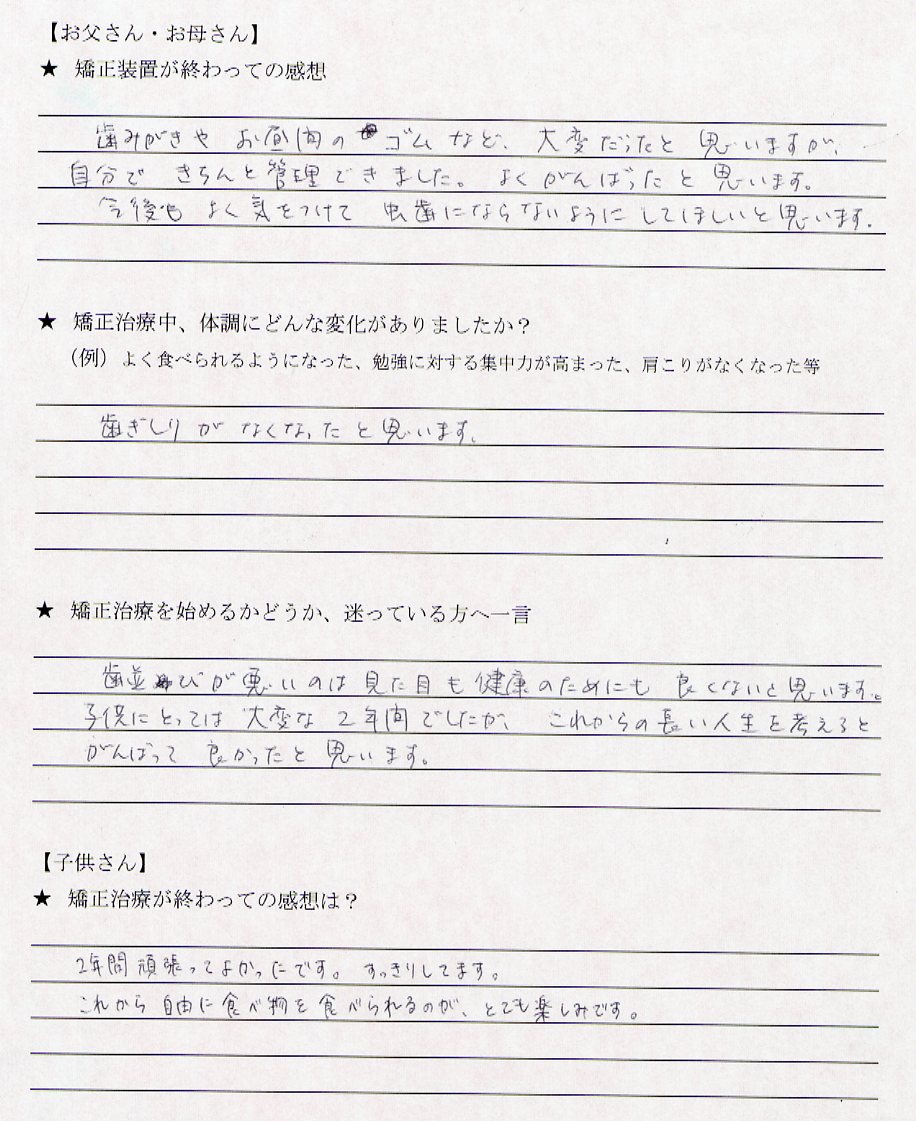 【お父さん・お母さん】
★ 矯正装置が終わっての感想
歯みがきや お昼間の ゴム など、大変だったと 思いますが、
自分で きちんと管理できました。よく がんばったと 思います。
今後も よく 気をつけて 虫歯にならないように してほしいと思います。
★ 矯正治療中、体調にどんな変化がありましたか？
（例）よく食べられるようになった、勉強に対する集中力が高まった、肩こりがなくなった等
歯ぎしり が なくなったと思います。
★ 矯正治療を始めるかどうか、迷っている方へ一言
歯並びが悪いのは 見た目も 健康のためにも 良くないと思います。
子供にとっては 大変な 2年間でしたが、これからの長い人生を考えると
がんばって 良かったと 思います。
【子供さん】
★ 矯正治療が終わっての感想は？
2年間頑張ってよかったです。すっきりしてます。
これから 自由に食べ物を食べられるのが、とても楽しみです。